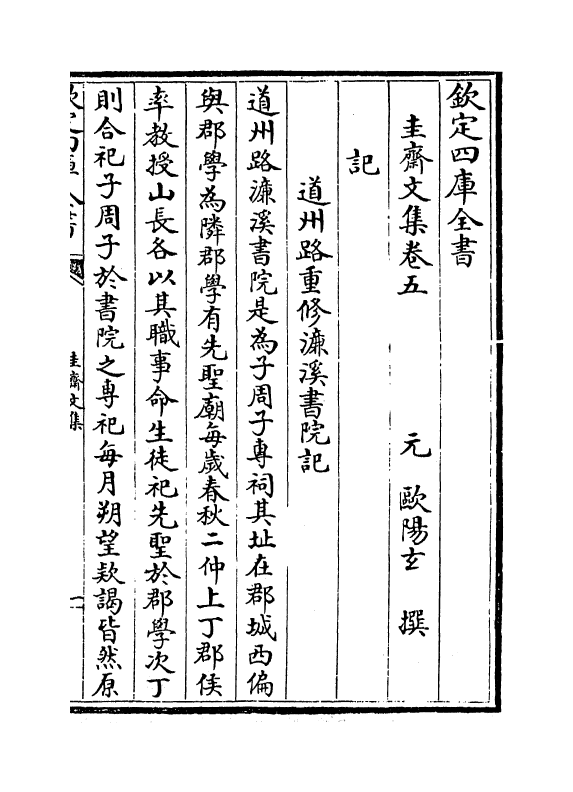 欽定四庫全書
圭齋文集卷五
元 歐陽玄 撰
記
道州路重修濂溪書院記
道州路濂溪書院是為子周子專祠其址在郡城西偏
與郡學為隣郡學有先聖廟每歲春秋二仲上丁郡侯
率教授山長各以其職事命生徒祀先聖於郡學次丁
則合祀子周子於書院之專祀每月朔望欵謁皆然原
欽定四庫全書
圭齋文集
一